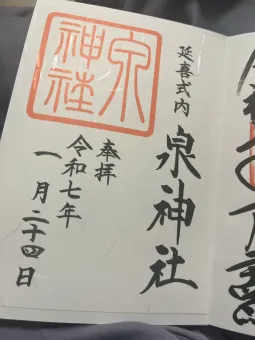 延喜式内
泉神社
泉
神社
奉拝
令和七年
一月二十四日